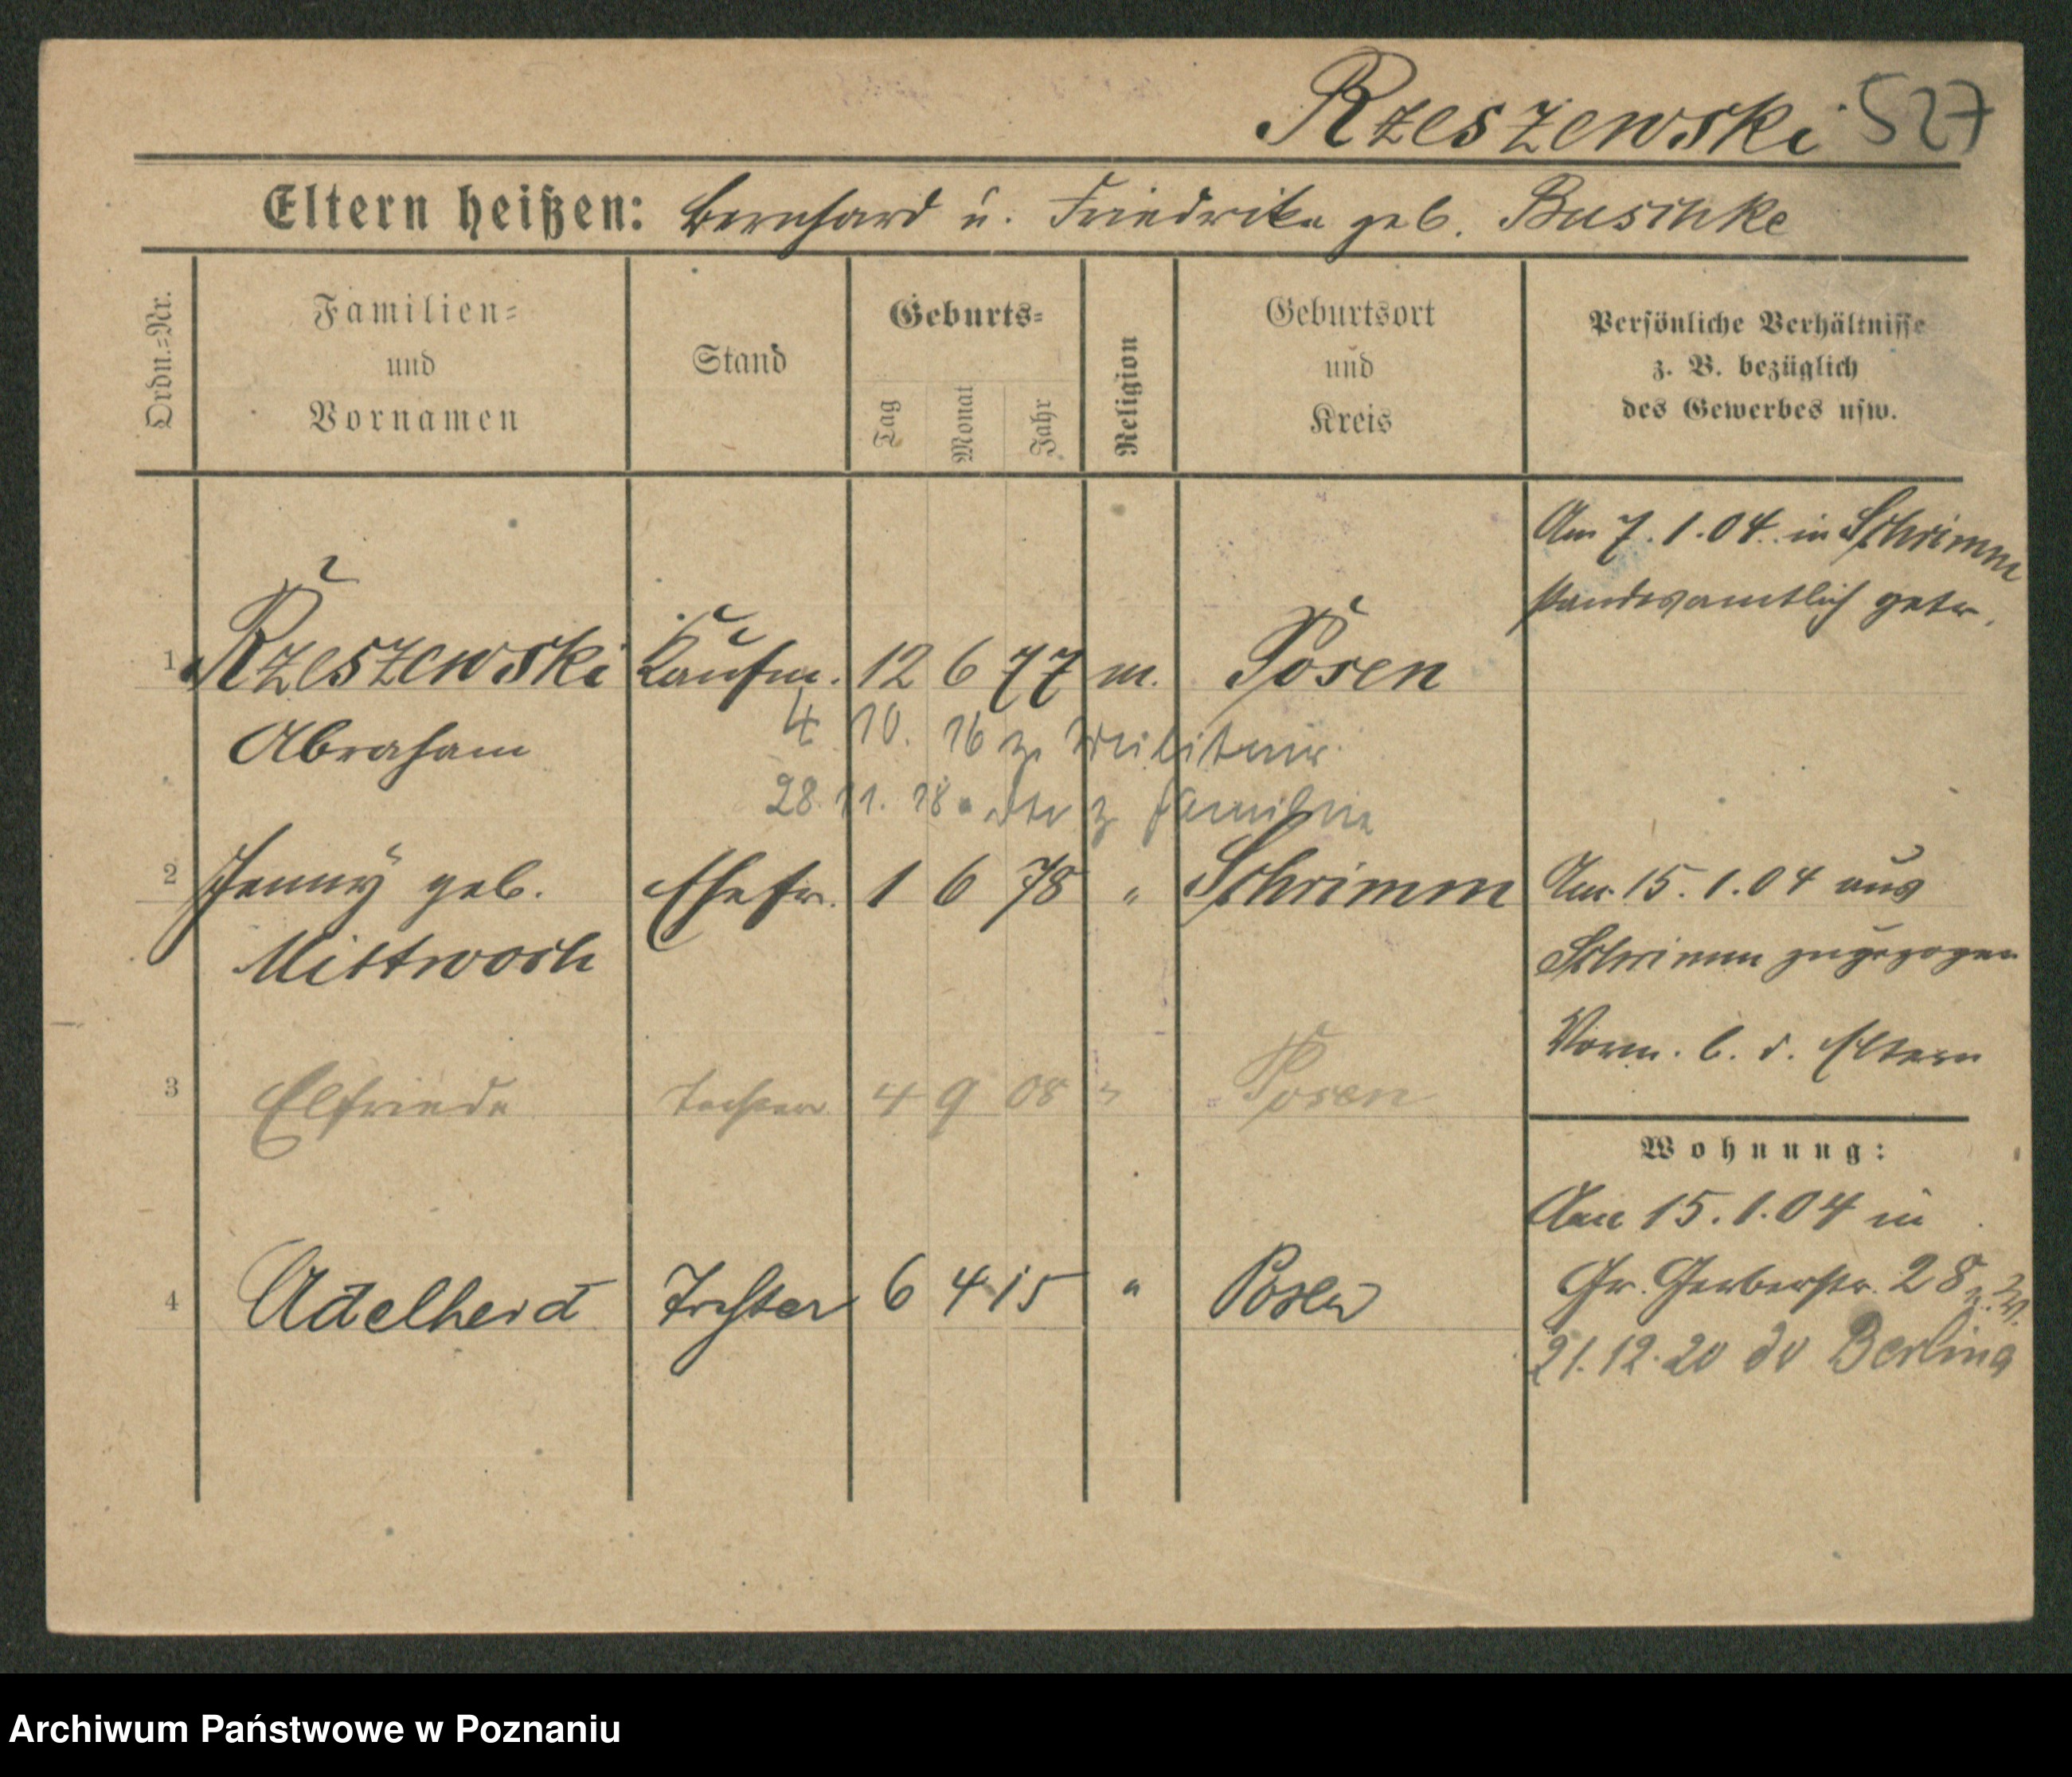 Rzeszewski 527
Eltern heißen: Bernhard u. Friedrike geb. Buschke
Ordn.=Nr.
Familien=
und
Vornamen
Stand
Geburts=
Tag
Monat
Jahr
Religion
Geburtsort
und
Kreis
Persönliche Verhältnisse
z. B. bezüglich
des Gewerbes usw.
Am 7.1.04. in Schrimm
standesamtlich getr.
1 Rzeszewski Kaufm. 12 6 77 m. Posen
Abraham 4 10. 16 z. Militär.
28. 11. 18. z Familie
2 Jenny geb. Ehefr. 1 6 78 " Schrimm Am 15.1.04 aus
Mittwoch Schrimm zugezogen
Vorm. b. d. Eltern
3 Elfriede Tochter 4 9 08 " Posen
Wohnung:
Am 15.1.04 in
4 Adelheid Tochter 6 4 15 " Posen Gr. Gerberstr. 28
21.12.20 Berlin
Archiwum Państwowe w Poznaniu